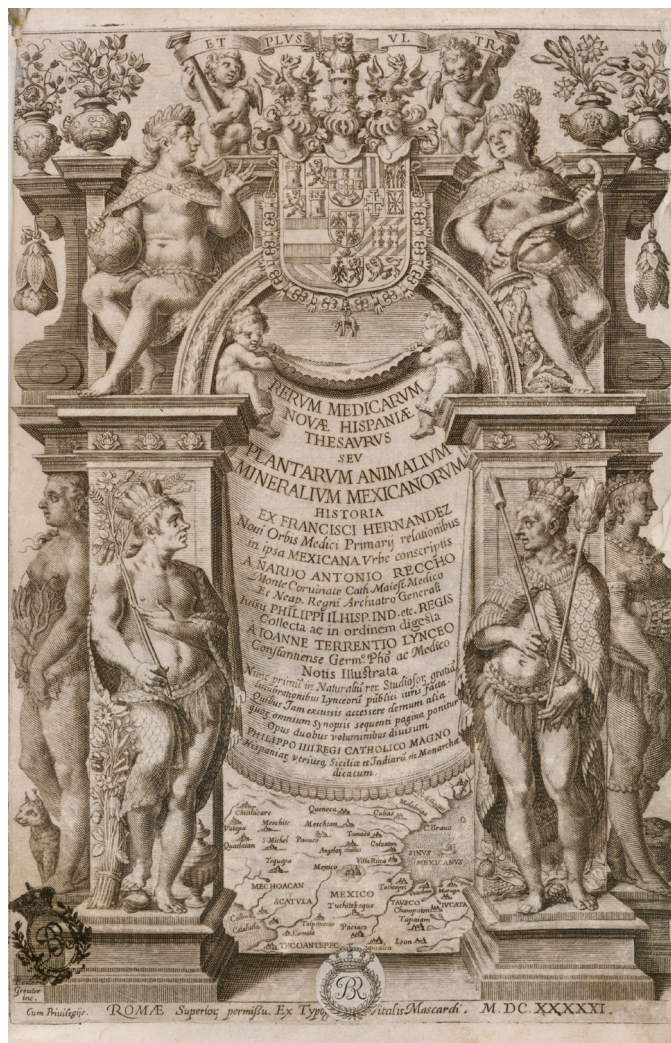 ET PLVS VL TRA
RERVM MEDICARVM
NOVÆ HISPANIÆ
THESAVRVS
SEV
PLANTARVM ANIMALIVM
MINERALIVM MEXICANORVM
HISTORIA
EX FRANCISCI HERNANDEZ
Noui Orbis Medici Primarij relationibus
in ipsa MEXICANA Vrbe conscriptis
A NARDO ANTONIO RECCHO
Monte Coruinate Cath. Maiest. Medico
Et Neap. Regni Archiatro Generali
Iussu PHILIPPI II. HISP. IND. etc. REGIS
Collecta ac in ordinem digesta
A IOANNE TERRENTIO LYNCEO
Constantiense Germ.º Phõ ac Medico
Notis Illustrata
Nunc primũ in Naturaliũ rer. Studiosor. gratiã
lucubrationibus Lynceorũ publici iuris facta.
Quibus Jam excussis accessere demum alia
quor. omnium Synopsis sequenti pagina ponitur
Opus duobus voluminibus diuisum
PHILIPPO IIII REGI CATHOLICO MAGNO
Hispaniar. vtriusq. Siciliæ et Indiarũ etc Monarchæ
dicatum.
Queneca
Culias
Meschite
Meschian
S Michel
Panuco
Villa Ricca
SINVS
MEXICANVS
Mexico
MECHOACAN
SCATVLA
MEXICO
Tuchitepeque
TAVSCO
IVCATA
Champaton
Tapaiam
Paciaco
Leon
Greuter
inc.
Cum Privilegijs. ROMÆ Superior. permißu. Ex Typo vitalis Mascardi. M. DC. XXXXXI.
BR
BR